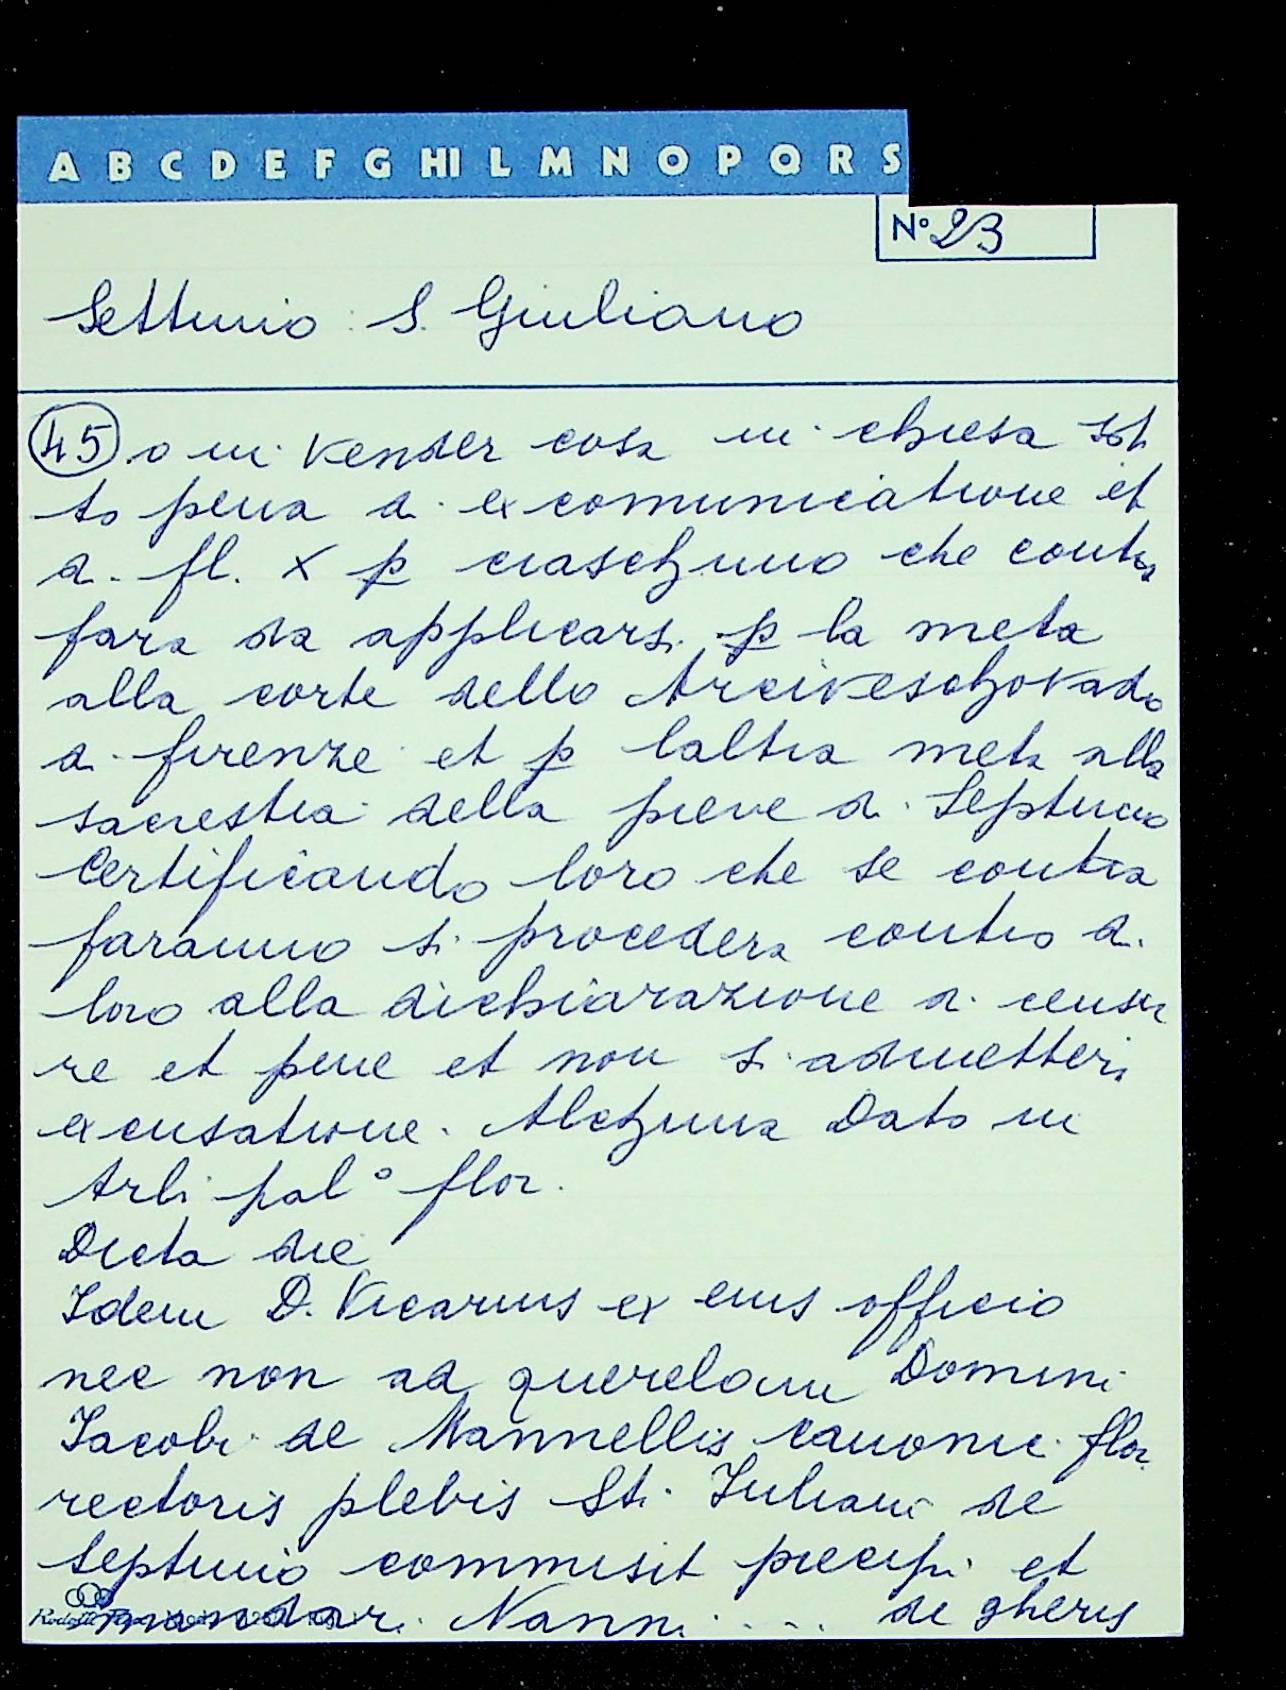 A B C D E F G HI L M N O P Q R S
N° 23
Settimo : S. Giuliano
45 .o in vender cosa in chiesa sot
to pena di excomunicatione et
di fl. X p ciaschuno che contra
fara da applicarsi p la meta
alla corte dello Arciveschovado
di firenze et p laltra meta alla
sacrestia della pieve di Septimo
Certificando loro che se contra
faranno si procedera contro di
loro alla dichiarazione di censu
re et pene et non si admettera
excusatione. Alchuna Dato in
Arli pal° flor.
Dicta die
Idem D. Vicarius ex eius officio
nec non ad querelam Domini
Iacobi de Mannellis canonici flor.
rectoris plebis Sti. Iuliani de
Septimo commisit precipi et
mandari Nanni . . . de gheris